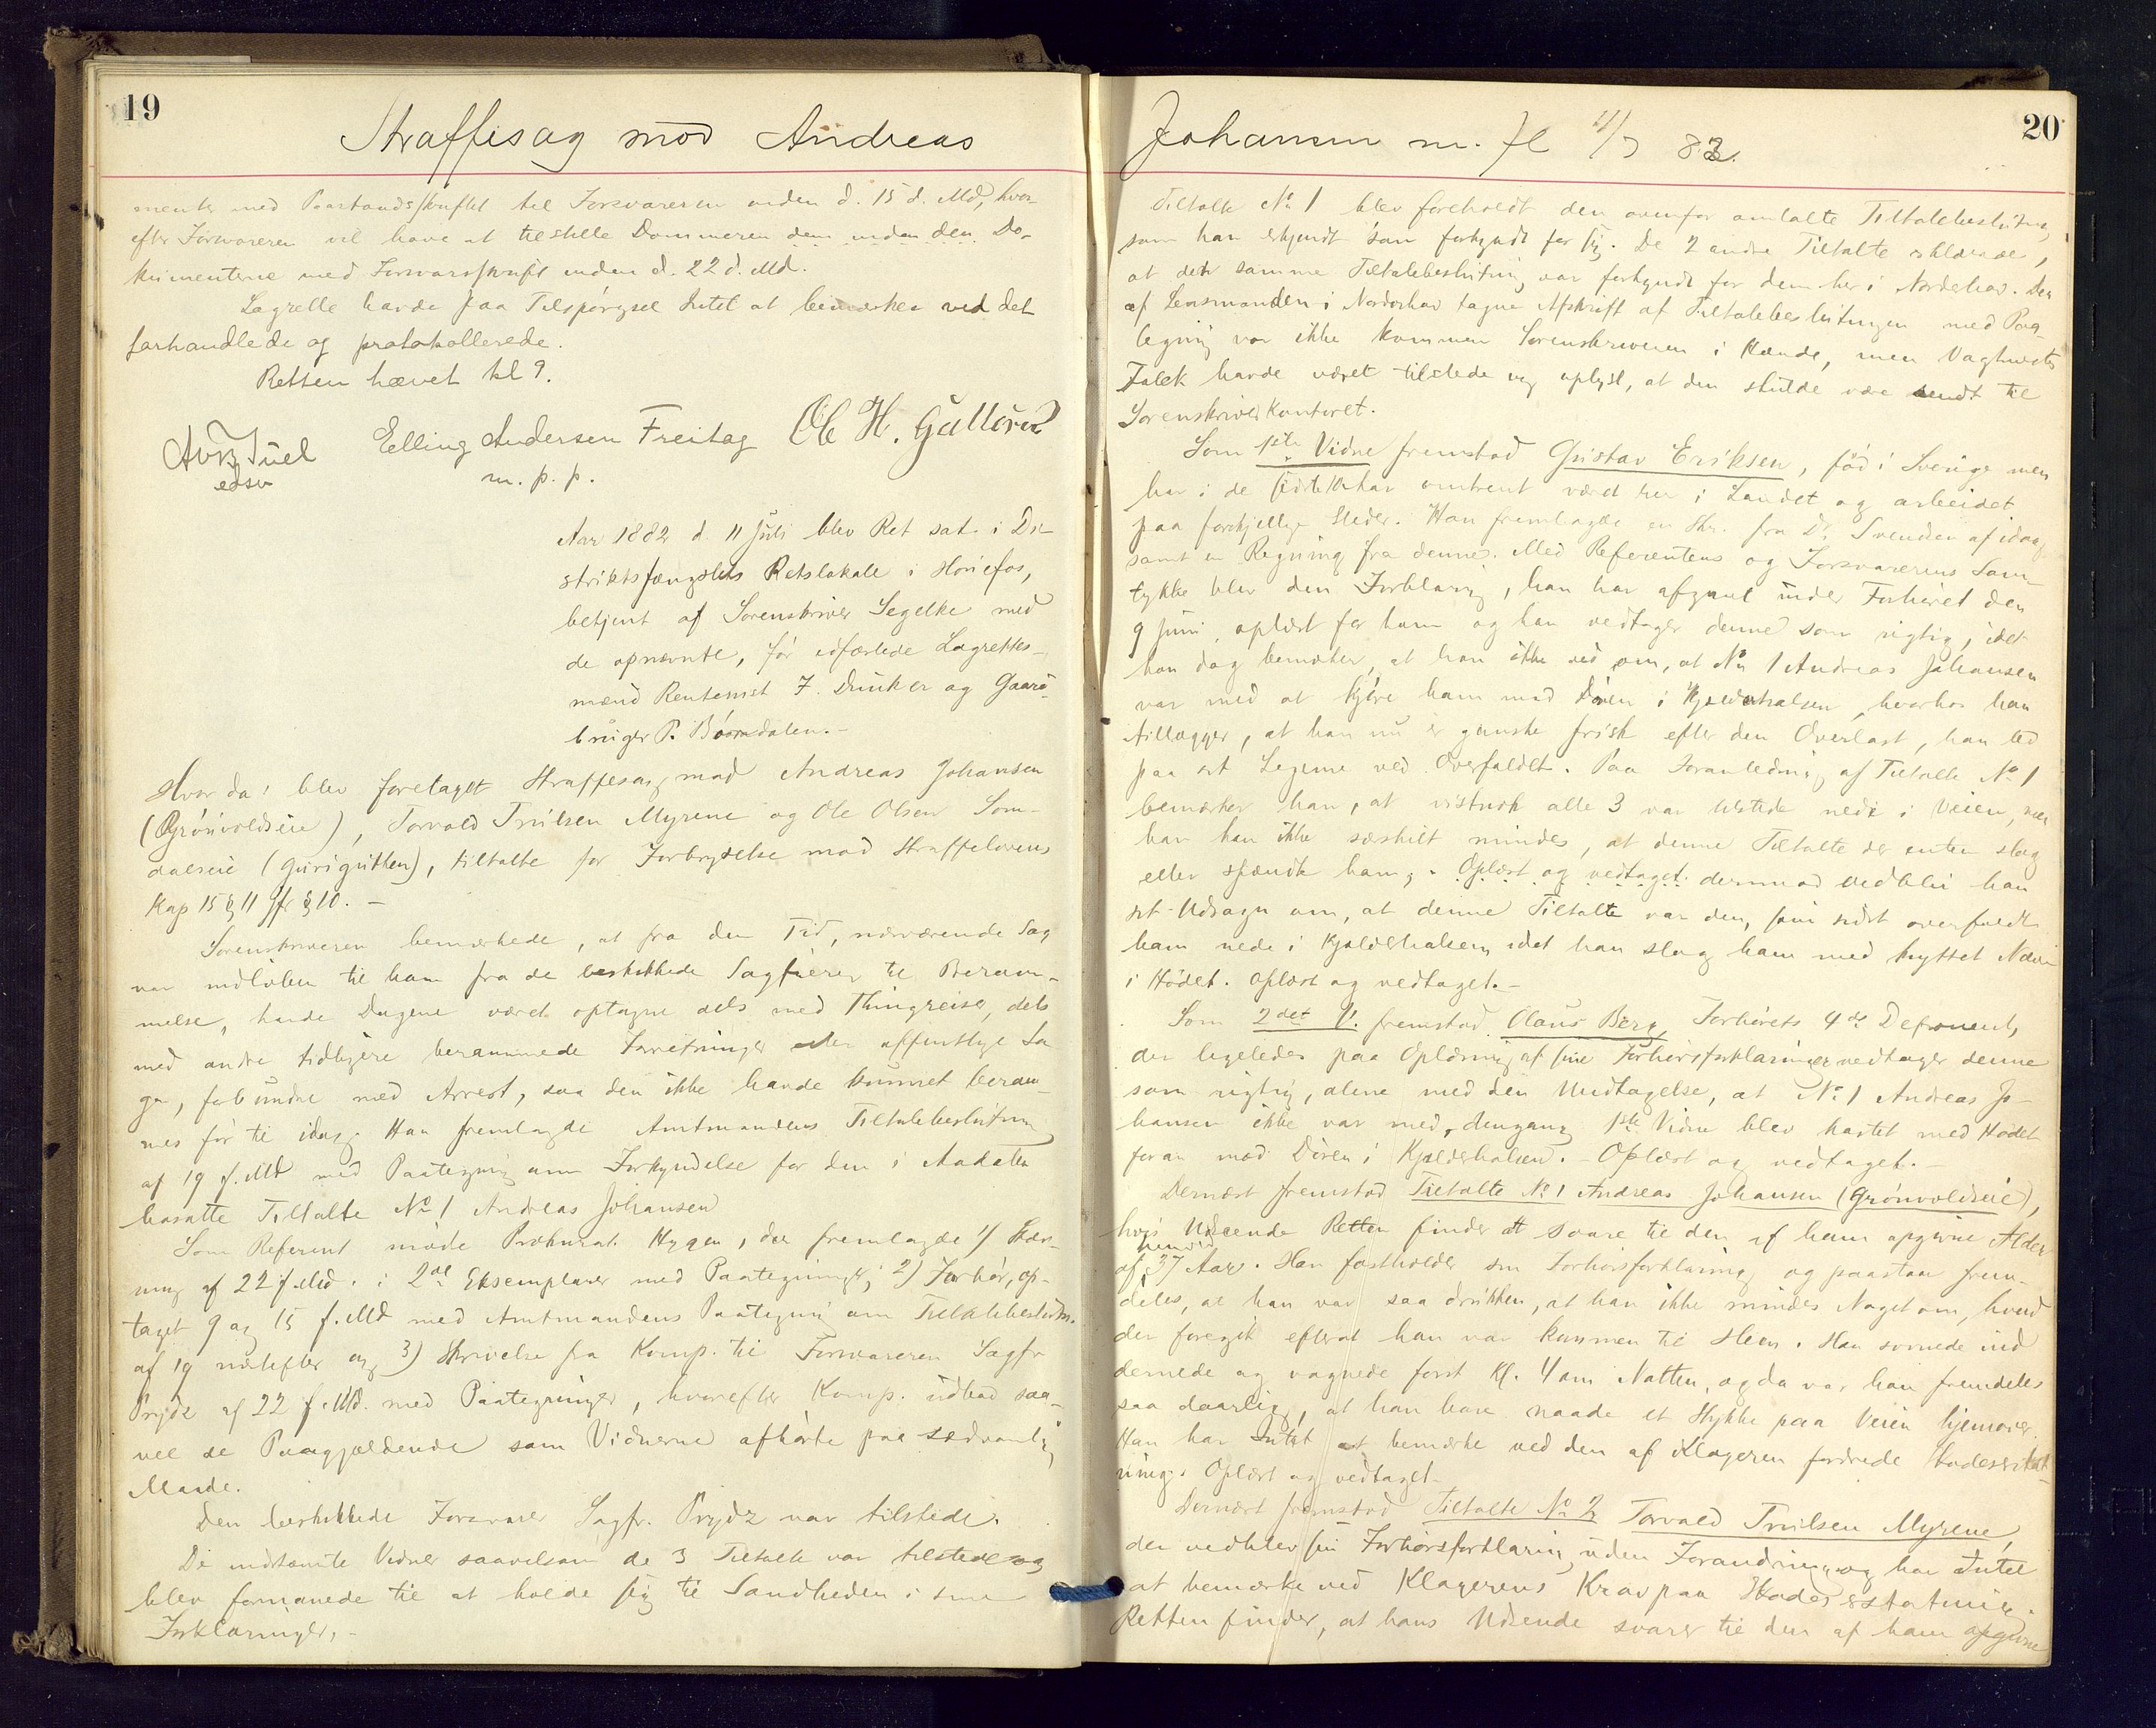 19
Straffesag mod Andreas
menter med Paastandsskriftet til Forsvareren inden d. 15 d. Md, hvor-
efter Forsvareren vil have at tilstille Dommeren dem inden den Do-
kumenterne med Forsvarsskrift inden d. 22 d. Md.
Lagrette havde paa Tilspørgsel Intet at bemærke ved det
forhandlede og protokollerede.
Retten hævet kl 9.
Juel Elling Andersen Freitag Ole H. Gulloren
edsv m. p. p.
Aar 1882 d. 11 Juli blev Ret sat i Di-
striktsfængslets Retslokale i Hønefos,
betjent af Sorenskriver Segelke med
de opnævnte, før edfæstede Lagrettes-
mænd Rentenist F. Drinker og Gaard-
bruger P. Børndalen.-
Hvor da: blev foretaget Straffesag mod Andreas Johansen
(Grønvoldseie), Torvald Truilsen Myrene og Ole Olsen Som-
dalseie (Gurigutten), tiltalte for Forbrydelse mod Straffelovens
Kap 15 § 11 jfr § 10. -
Sorenskriveren bemærkede, at fra den Tid, nærværende Sag
var indløben til ham fra de beskikkede Sagfører til Beram-
melse, havde Dagene været optagne dels med Thingreiser, dels
med andre tidligere berammede Forretninger eller offentlige Sa
ger, forbundne med Arrest, saa den ikke havde kunnet beram-
mes før til idag. Han fremlagde Amtmandens Tiltalebeslutning
af 19 f. Md med Paategning om Forkyndelse for den i Aadalen
bosatte Tiltalte No 1 Andreas Johansen
Som Referent mødte Prokurat. Hygen, der fremlagde 1) Stæv-
ning af 22 f. Md. i 2de Eksemplarer med Paategninger; 2) Forhør, op-
taget 9 og 15 f. Md med Amtmandens Paategning om Tiltalebeslutn.
af 19 næstefter og 3) Skrivelse fra Komp. til Forsvareren Sagfr
Prydz af 22 f. Md. med Paategninger, hvorefter Komp. udbad saa-
vel de Paagjældende som Vidnerne afhørte paa sædvanlig
Maade.
Den beskikkede Forsvarer Sagfr. Prydz var tilstede.
De indstævnte Vidner saavelsom de 3 Tiltalte var tilstede og
blev formanede til at holde sig til Sandheden i sine
Forklaringer. -
Johansen m. fl 11/7 82.
20
Tiltalte No 1 blev foreholdt den ovenfor omtalte Tiltalebeslutning,
som han erkjendt som forkyndt for sig. De 2 andre Tiltalte erklærede,
at den samme Tiltalebeslutning var forkyndt for dem her i Norderhov. Den
af Lensmanden i Norderhov tagne Afskrift af Tiltalebeslutningen med Paa-
tegning var ikke kommen Sorenskriveren i Hænde, men Vagtmester
Falck havde været tilstede og oplyst, at den skulde være sendt til
Sorenskriverkontoret.
Som 1ste Vidne fremstod Gustav Eriksen, fød i Sverige men
har i de sidste Aar omtrent været her i Landet og arbeidet
paa forskjellige Steder. Han fremlagde en Skr. fra Dr. Svendsen af idag
samt en Regning fra denne. Med Referentens og Forsvarerens Sam-
tykke blev den Forklaring, han har afgivet under Forhøret den
9 Juni, oplæst for ham og han vedtager denne som rigtig, idet
han dog bemærker, at han ikke ved om, at No 1 Andreas Johansen
var med at kjøre ham mod Døren i Kjælderhalsen, hvorhos han
tillægger, at han nu er ganske frisk efter den Overlast, han led
paa sit Legeme ved Overfaldet. Paa Foranledning af Tiltalte No 1
bemærker han, at vistnok alle 3 var tilstede nede i Veien, men
han kan ikke særskilt mindes, at denne Tiltalte der enten slog
eller spændte ham,. Oplæst og vedtaget. dermod vedblev han
sit Udsagn om, at denne Tiltalte var den, som sidst overfaldt
ham nede i Kjælderhalsen, idet han slog ham med knyttet Næve
i Hodet. Oplæst og vedtaget.-
Som 2det V. fremstod Olaus Berg, Forhørets 4de Deponent,
der ligeledes paa Oplæsning af sine Forhørsforklaringer vedtager denne
som rigtig, alene med den Undtagelse, at No 1 Andreas Jo-
hansen ikke var med, dengang 1ste Vidne blev kastet med Hodet
foran mod Døren i Kjælderhalsen. - Oplæst og vedtaget. -
Dernæst fremstod Tiltalte No 1 Andreas Johansen (Grønvoldseie),
hvis Udseende Retten finder at svare til den af ham opgivne Alder
af henved 37 Aar. Han fastholder sin Forhørsforklaring og paastaar frem-
deles, at han var saa drukken, at han ikke mindes Noget om, hvad
der foregik efterat han var kommen til Hem. Han sovnede ind
dernede og vagnede først Kl. 4 om Natten, og da var han fremdeles
saa daarlig, at han bare naade et Stykke paa Veien hjemover.
Han har Intet at bemærke ved den af Klageren fordrede Skadeserstat-
ning. Oplæst og vedtaget.-
Dernæst fremstod Tiltalte No 2 Torvald Truilsen Myrene,
der vedblev sin Forhørsforklaring uden Forandring og har Intet
at bemærke ved Klagerens Krav paa Skadeserstatning.
Retten finder, at hans Udseende svarer til den af ham opgivne